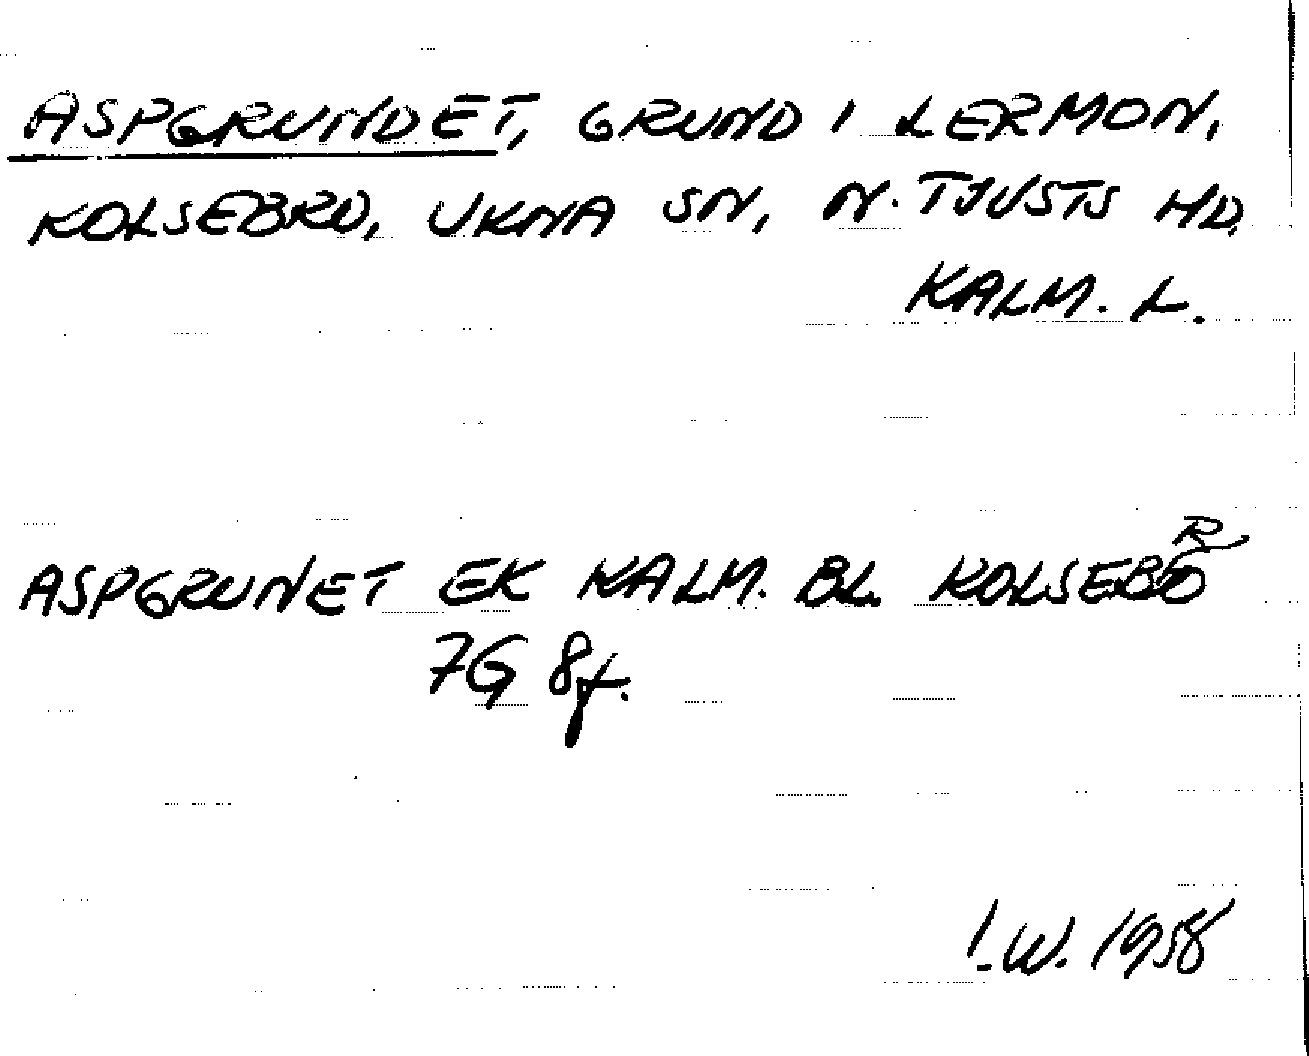 ASPGRUNDET, GRUND I LERMON,
KOLSEBRO, UKNA SN, N. TJUSTS HD,
KALM. L.
ASPGRUNET EK KALM. BL. KOLSEBRO
7G 8f.
I.W. 1958